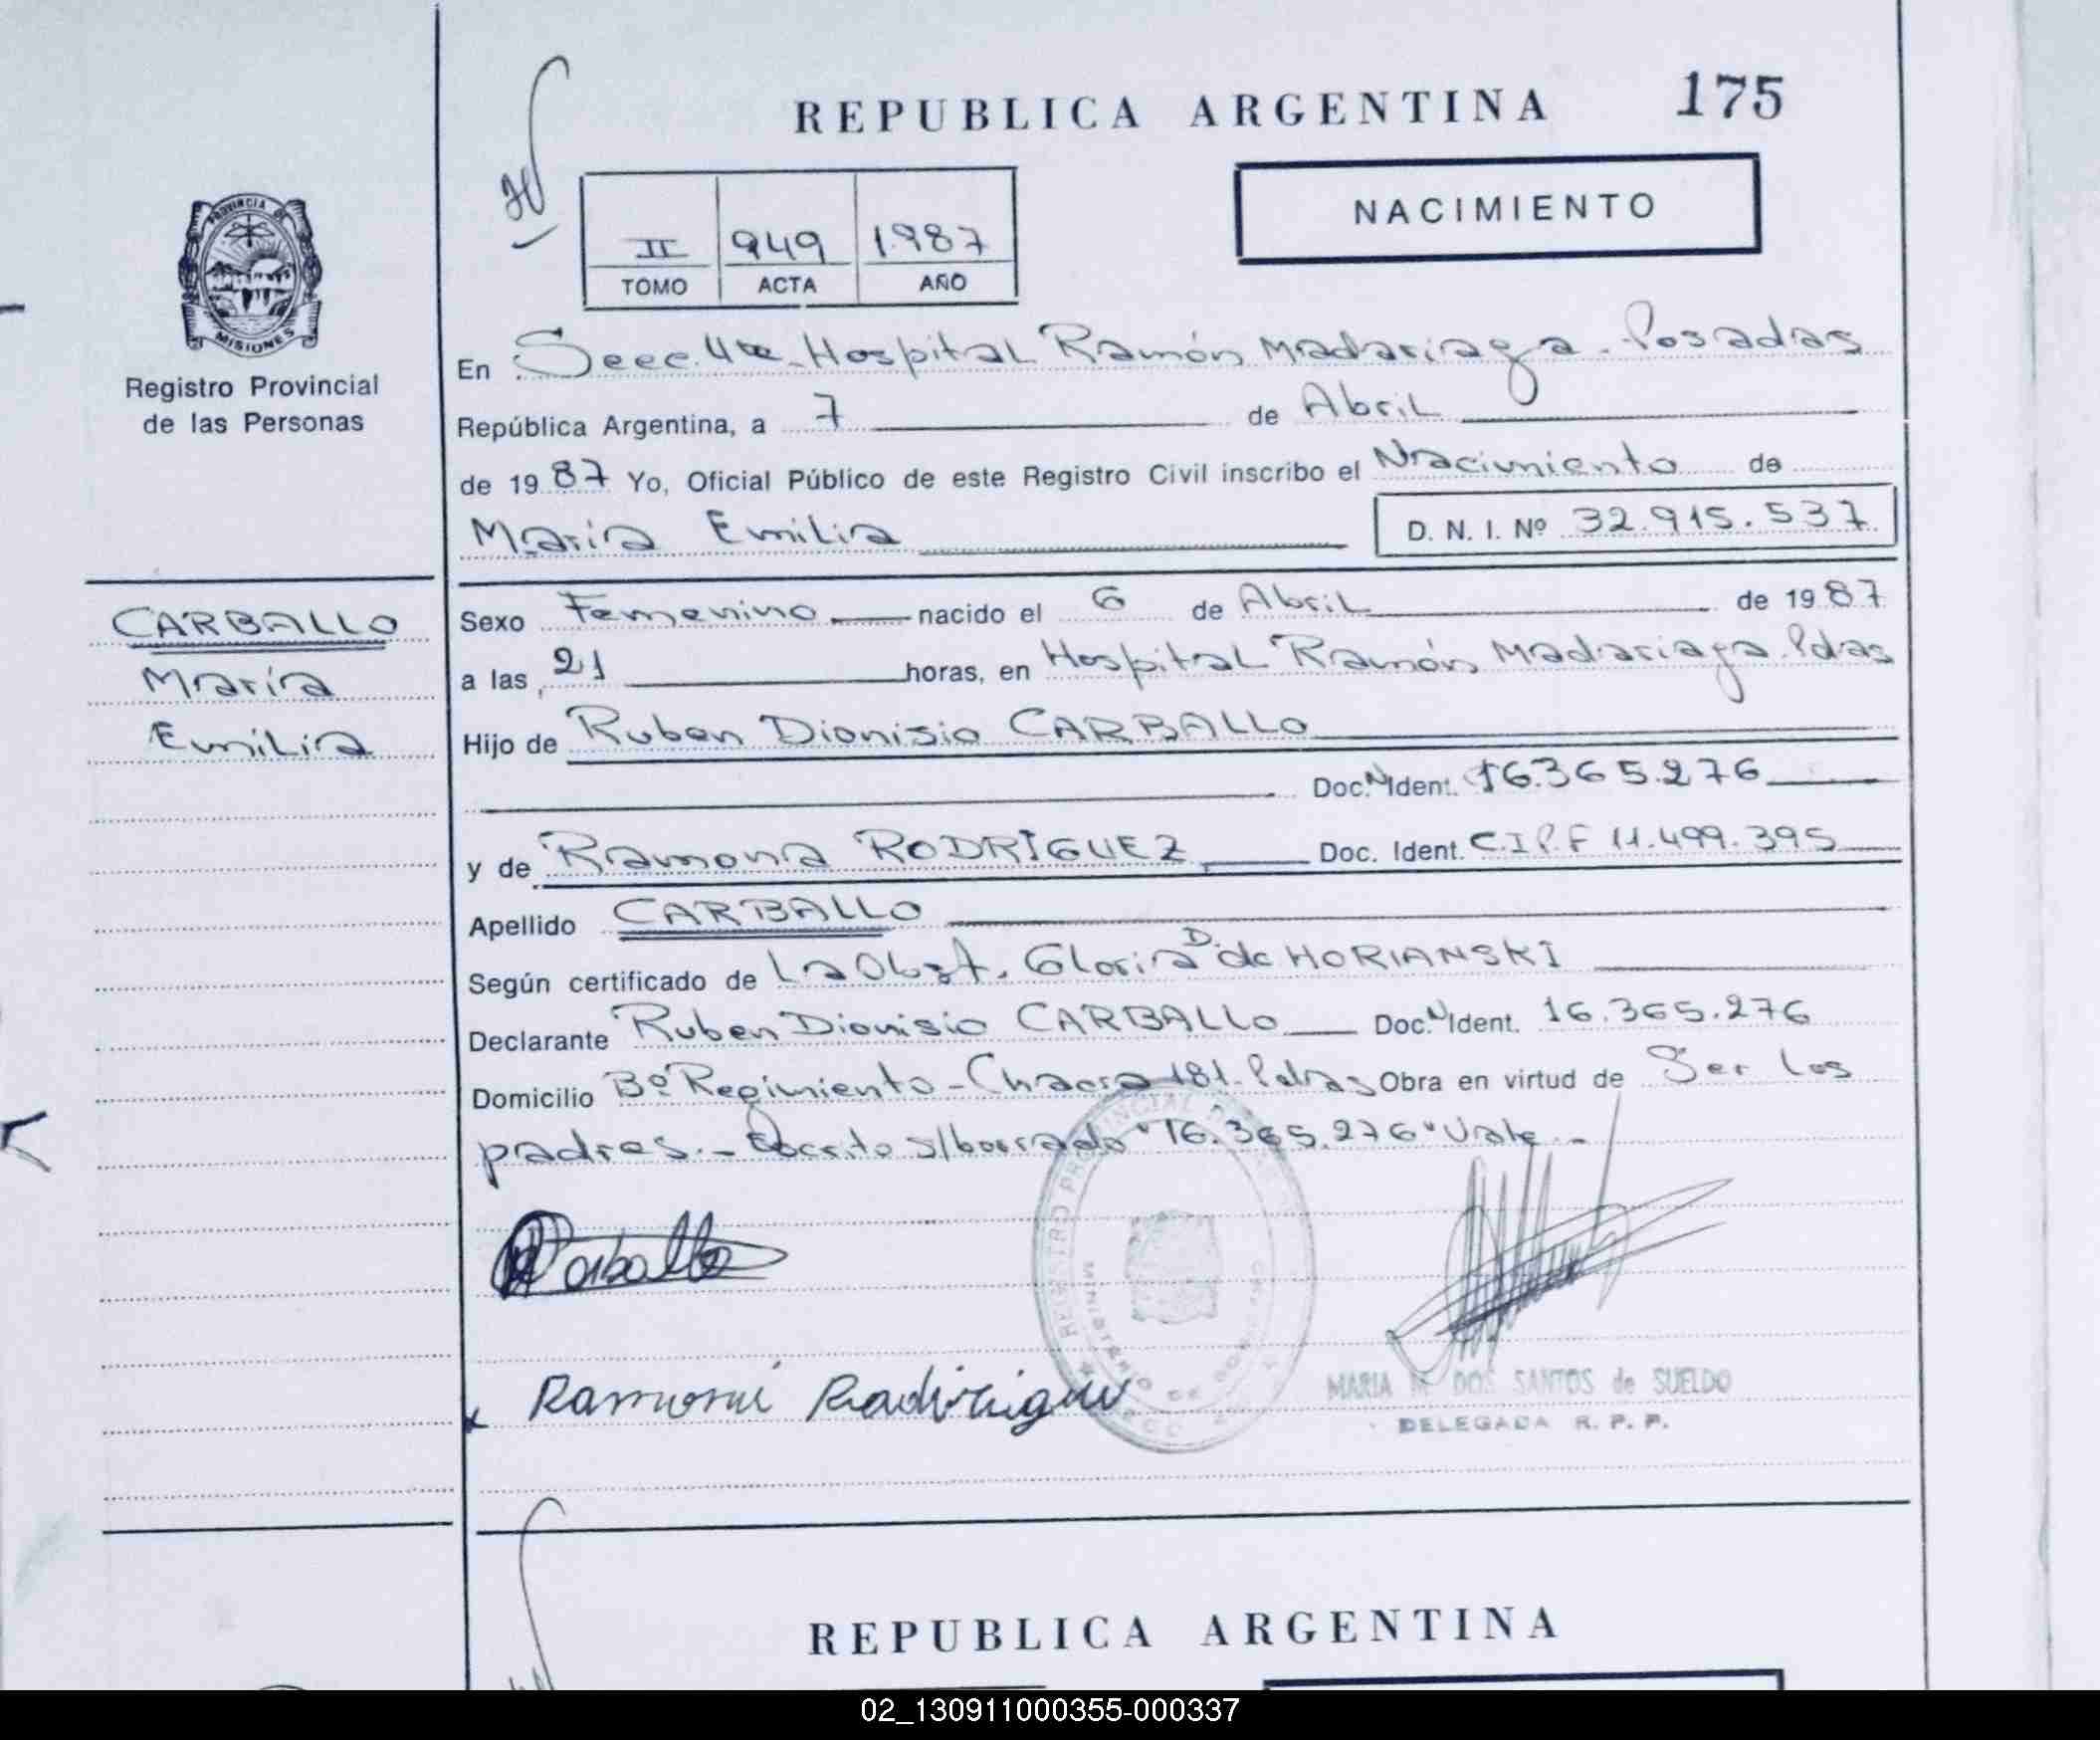 REPUBLICA ARGENTINA 175
NACIMIENTO
II 949 1987
TOMO ACTA AÑO
PROVINCIA DE
MISIONES
Registro Provincial
de las Personas
En Secc. 4ta Hospital Ramón Madariaga - Posadas
República Argentina, a 7 de Abril
de 1987 Yo, Oficial Público de este Registro Civil inscribo el Nacimiento de
María Emilia D. N. I. Nº 32.915.537
CARBALLO
María
Emilia
Sexo Femenino nacido el 6 de Abril de 1987
a las 21 horas, en Hospital Ramón Madariaga. Pdas
Hijo de Ruben Dionisio CARBALLO
Doc. N Ident. 16.365.276
y de Ramona RODRÍGUEZ Doc. Ident. C.I.P.F 11.499.395
Apellido CARBALLO
Según certificado de La Obst. Gloria D. de HORIANSKI
Declarante Ruben Dionisio CARBALLO Doc. N Ident. 16.365.276
Domicilio Bº Regimiento - Chacra 181. Pdas Obra en virtud de Ser los
padres. - Escrito s/borrado "16.365.276" Vale -
Carballo
Ramona
MARIA DOS SANTOS de SUELDO
DELEGADA R. P. P.
REPUBLICA ARGENTINA
02_130911000355-000337